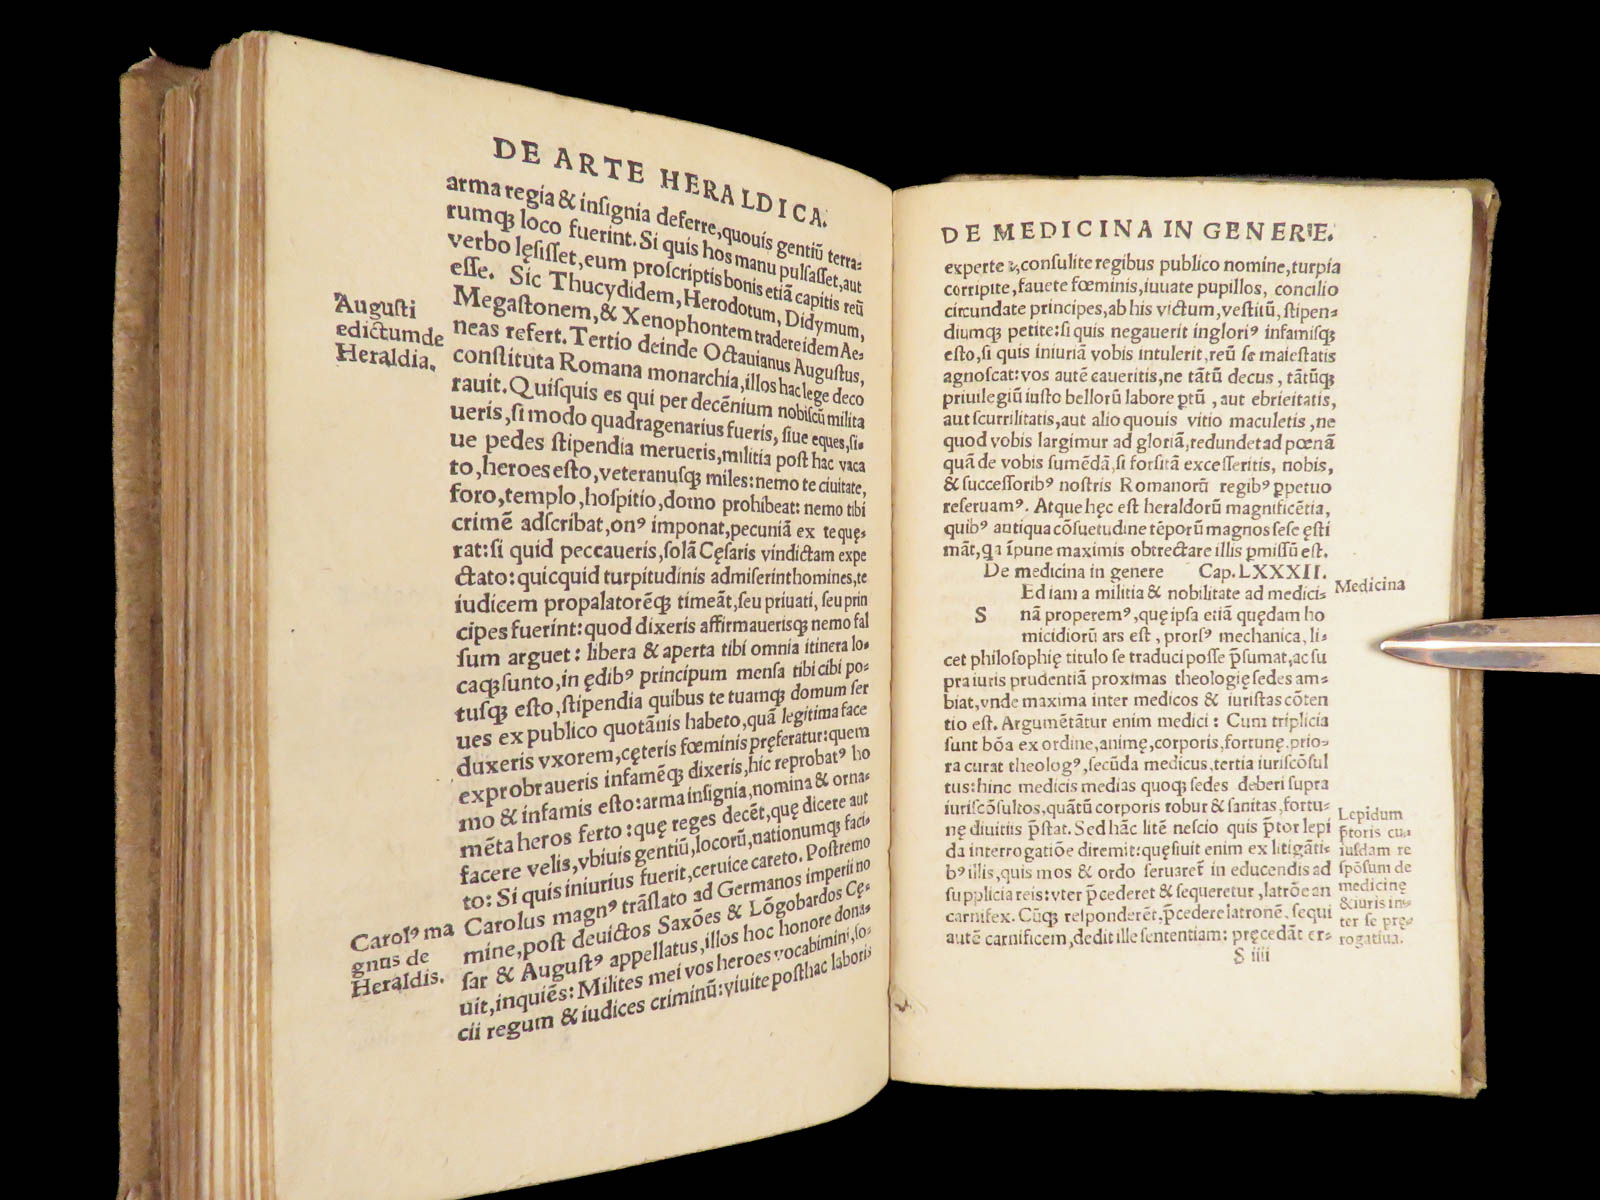 DE ARTE HERALDICA.
arma regia & inſignia deferre, quouis gentiũ terra⸗
rumq́ꝫ loco fuerint. Si quis hos manu pulſaſſet, aut
verbo lęſiſſet, eum proſcriptis bonis etiã capitis reũ
eſſe. Sic Thucydidem, Herodotum, Didymum,
Megaſtonem, & Xenophontem tradere idem Ae⸗
neas refert. Tertio deinde Octauianus Auguſtus,
conſtituta Romana monarchia, illos hac lege deco
rauit. Quiſquis es qui per decẽnium nobiſcũ milita
ueris, ſi modo quadragenarius fueris, ſiue eques, ſi⸗
ue pedes ſtipendia merueris, militia poſt hac vaca
to, heroes eſto, veteranuſqꝫ miles: nemo te ciuitate,
foro, templo, hoſpitio, domo prohibeat: nemo tibi
crimẽ adſcribat, onꝰ imponat, pecuniã ex te quę⸗
rat: ſi quid peccaueris, ſolã Cęſaris vindictam expe
ctato: quicquid turpitudinis admiſerint homines, te
iudicem propalatorẽqꝫ timeãt, ſeu priuati, ſeu prin
cipes fuerint: quod dixeris affirmauerisqꝫ nemo fal
ſum arguet: libera & aperta tibi omnia itinera lo⸗
caqꝫ ſunto, in ędibꝰ principum menſa tibi cibi po⸗
tuſqꝫ eſto, ſtipendia quibus te tuamqꝫ domum ſer
ues ex publico quotãnis habeto, quã legitima face
duxeris vxorem, cęteris fœminis pręferatur: quem
exprobraueris infamẽqꝫ dixeris, hic reprobatꝰ ho
mo & infamis eſto: arma inſignia, nomina & orna⸗
mẽta heros ferto: quę reges decẽt, quę dicere aut
facere velis, vbiuis gentiũ, locorũ, nationumqꝫ faci⸗
to: Si quis iniurius fuerit, ceruice careto. Poſtremo
Carolus magnꝰ trãſlato ad Germanos imperii no
mine, poſt deuictos Saxões & Lõgobardos Cę⸗
ſar & Auguſtꝰ appellatus, illos hoc honore dona⸗
uit, inquiẽs: Milites mei vos heroes vocabimini, ſo⸗
cii regum & iudices criminũ: viuite poſthac laboris
Auguſti
edictum de
Heraldia.
Carolꝰ ma
gnus de
Heraldis.
DE MEDICINA IN GENERIE.
experte s, conſulite regibus publico nomine, turpia
corripite, fauete fœminis, iuuate pupillos, concilio
circundate principes, ab his victum, veſtitũ, ſtipen⸗
diumqꝫ petite: ſi quis negauerit inglori⁹ infamiſqꝫ
eſto, ſi quis iniuriã vobis intulerit, reũ ſe maieſtatis
agnoſcat: vos autẽ caueritis, ne tãtũ decus, tãtũqꝫ
priuilegiũ iuſto bellorũ labore ꝑtũ, aut ebrietatis,
aut ſcurrilitatis, aut alio quouis vitio maculetis, ne
quod vobis largimur ad gloriã, redundet ad pœnã
quã de vobis ſumẽdã, ſi forſitã exceſſeritis, nobis,
& ſucceſſoribꝰ noſtris Romanorũ regibꝰ ꝑpetuo
reſeruamꝰ. Atque hęc eſt heraldorũ magnificẽtia,
quibꝰ antiqua cõſuetudine tẽporũ magnos ſeſe ęſti
mãt, qa ĩpune maximis obtrectare illis ꝑmiſſũ eſt.
De medicina in genere Cap. LXXXII.
S
Ed iam a militia & nobilitate ad medici⸗
nã properemꝰ, quę ipſa etiã quędam ho
micidiorũ ars eſt, prorſꝰ mechanica, li⸗
cet philoſophię titulo ſe traduci poſſe p̃ſumat, ac ſu
pra iuris prudentiã proximas theologię ſedes am⸗
biat, vnde maxima inter medicos & iuriſtas cõten
tio eſt. Argumẽtãtur enim medici: Cum triplicia
ſunt bõa ex ordine, animę, corporis, fortunę, prio⸗
ra curat theologꝰ, ſecũda medicus, tertia iuriſcõſul
tus: hinc medicis medias quoqꝫ ſedes deberi ſupra
iuriſcõſultos, quãtũ corporis robur & ſanitas, fortu⸗
nę diuitiis p̃ſtat. Sed hãc litẽ neſcio quis p̃tor lepi
da interrogatiõe diremit: quęſiuit enim ex litigãti⸗
bꝰ illis, quis mos & ordo ſeruaret̃ in educendis ad
ſupplicia reis: vter p̃cederet & ſequeretur, latrõe an
carnifex. Cũqꝫ reſponderẽt, p̃cedere latronẽ, ſequi
autẽ carnificem, dedit ille ſententiam: pręcedãt er⸗
S iiii
Medicina
Lepidum
p̃toris cu⸗
iuſdam re
ſpõſum de
medicinę
& iuris in⸗
ter ſe pre⸗
rogatiua.